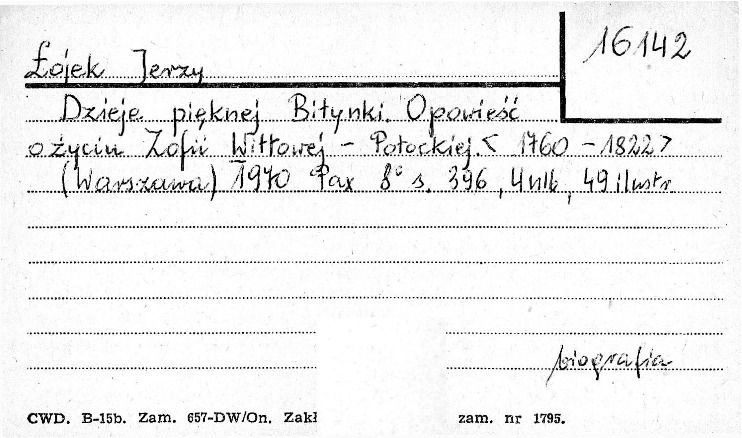 16142
Łojek Jerzy
Dzieje pięknej Bitynki. Opowieść
o życiu Zofii Wittowej - Potockiej. < 1760 - 1822 >
(Warszawa) 1970 Pax 8° s. 396, 4 nlb, 49 ilustr
biografia
CWD. B-15b. Zam. 657-DW/On. Zakł
zam. nr 1795.